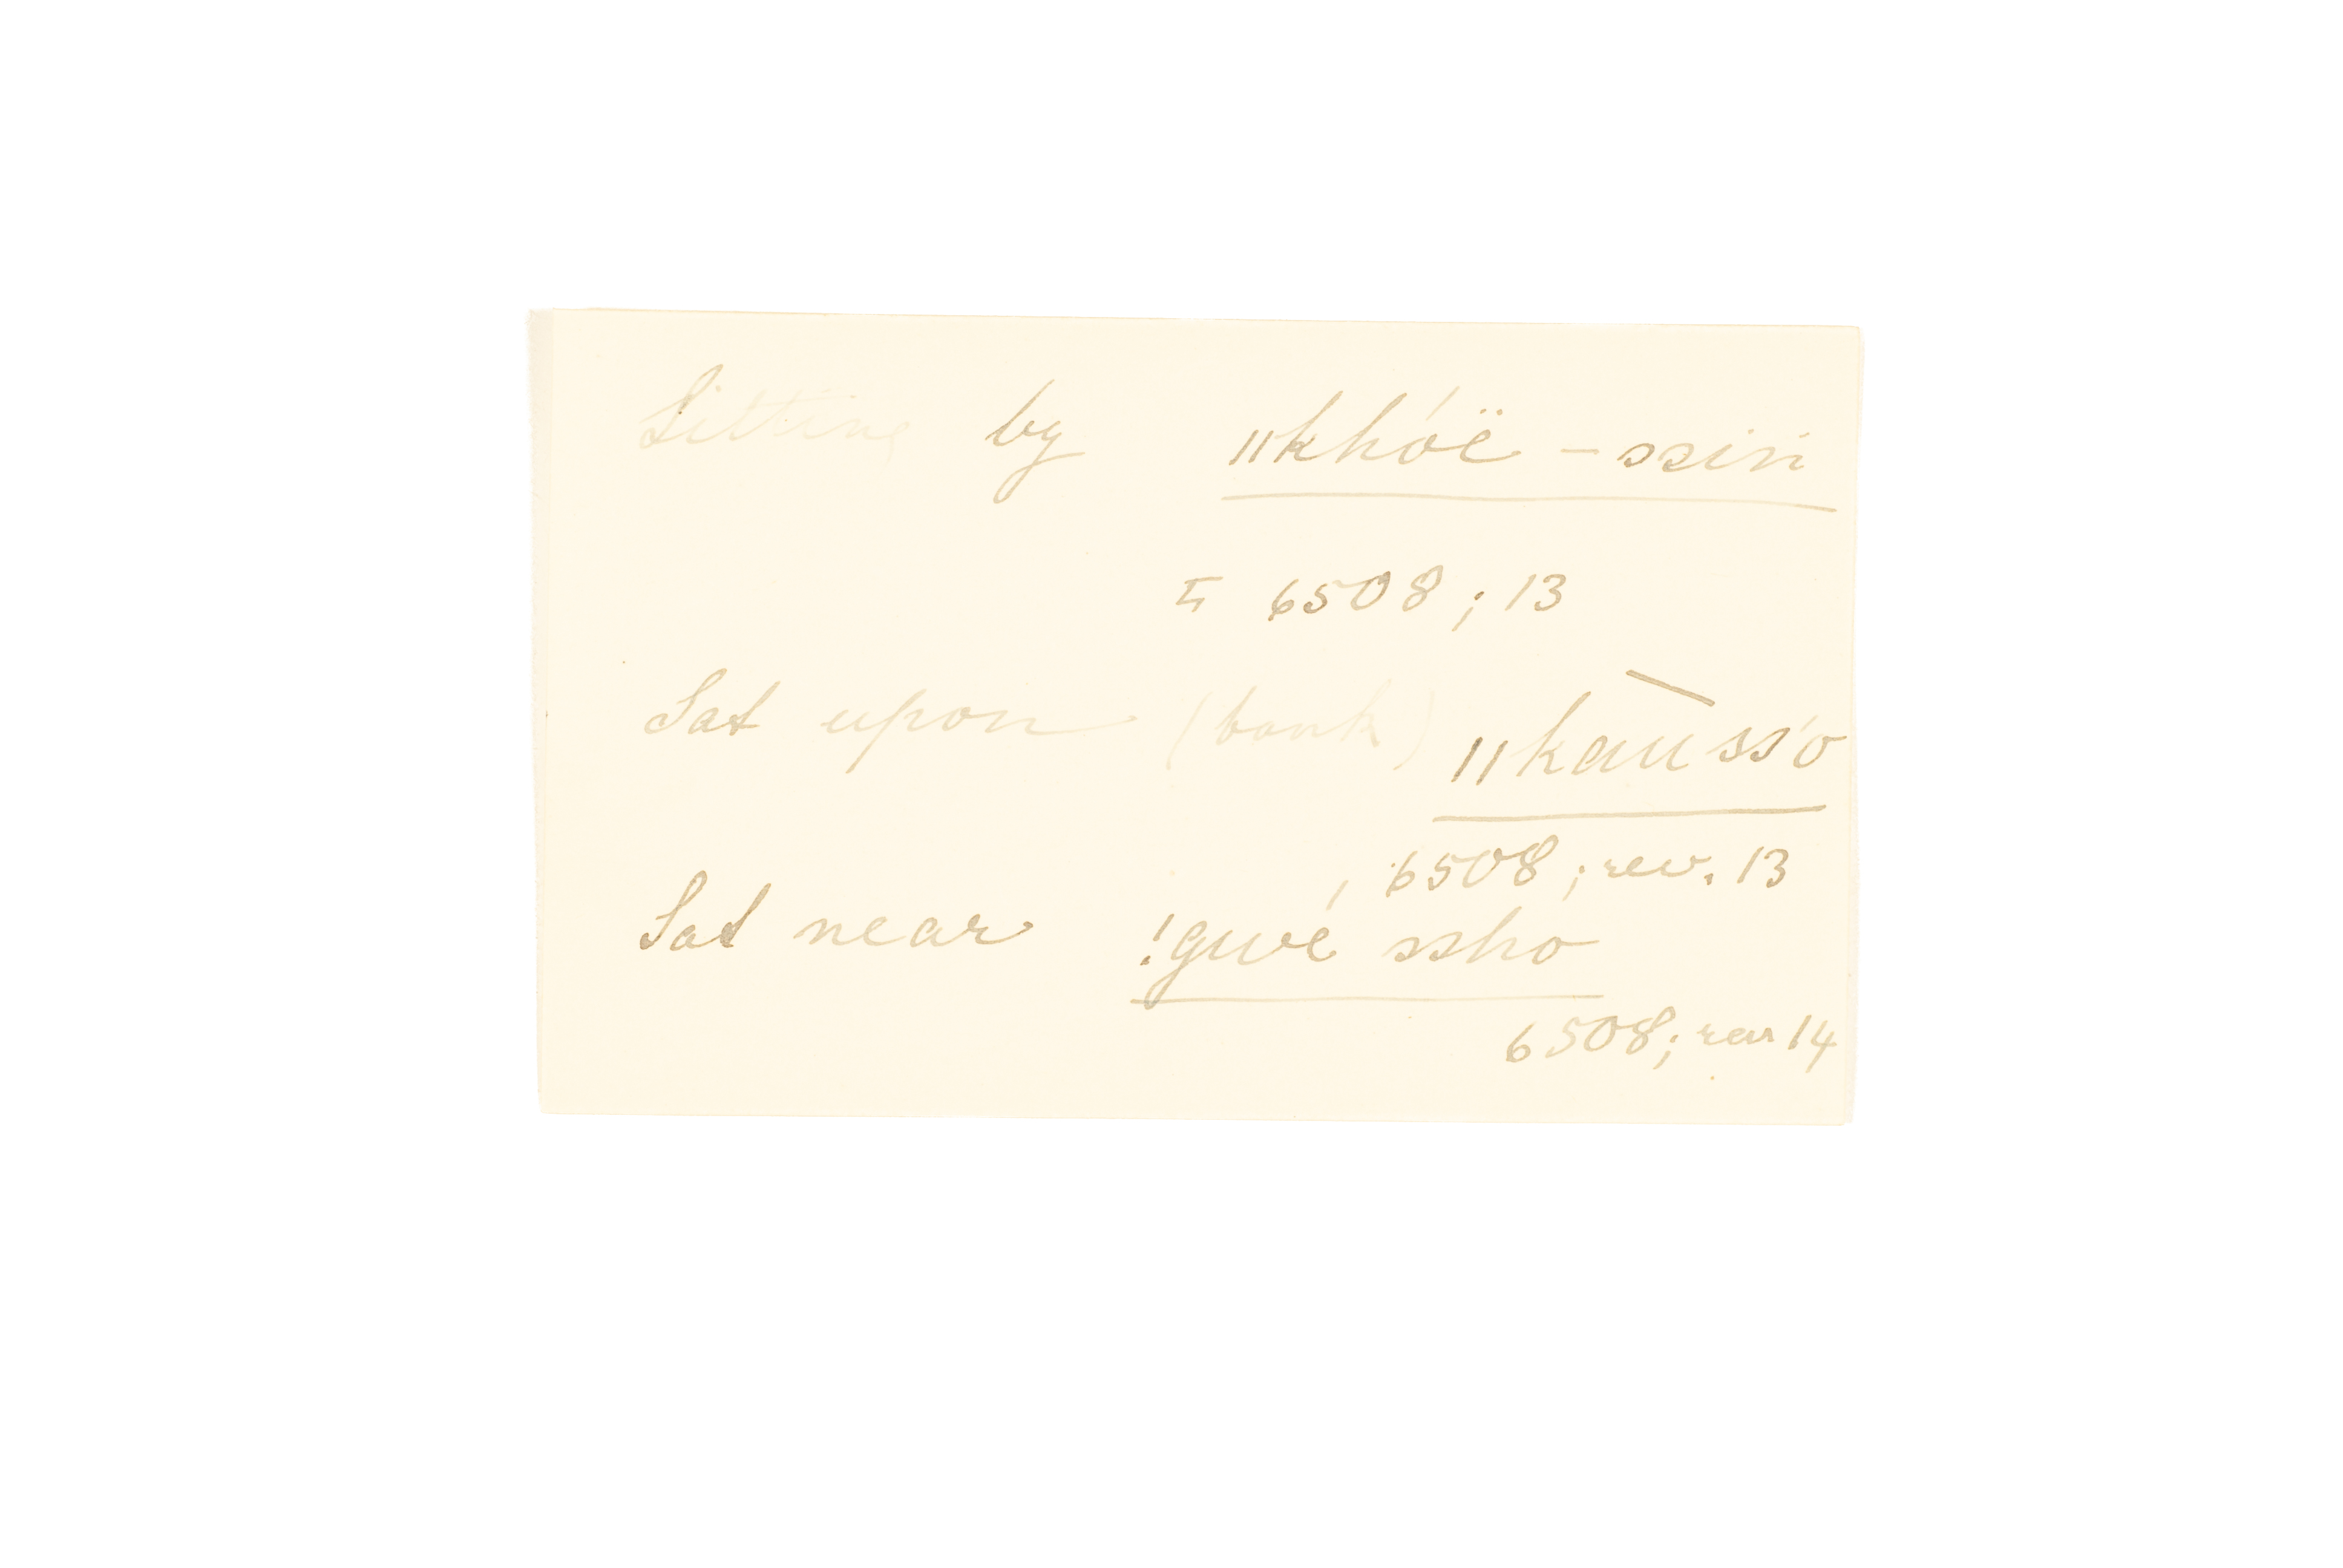 Sitting by ǁkhóë - ssin
L 6508; 13
Sat upon (bank) ǁkau ssʼo
6508; rev. 13
Sat near !gwé ssho
6508; rev 14